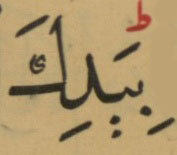 بِيَدِكَ ؕ